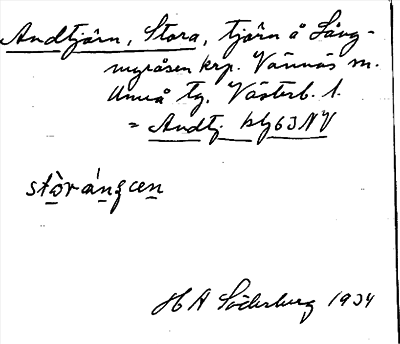 Andtjärn, Stora, tjärn å Lång-
myråsen krp. Vännäs m.
Umeå tg. Västerb. l.
= Andtj. kbl 63 NV
stòrán
H A Söderberg 1934